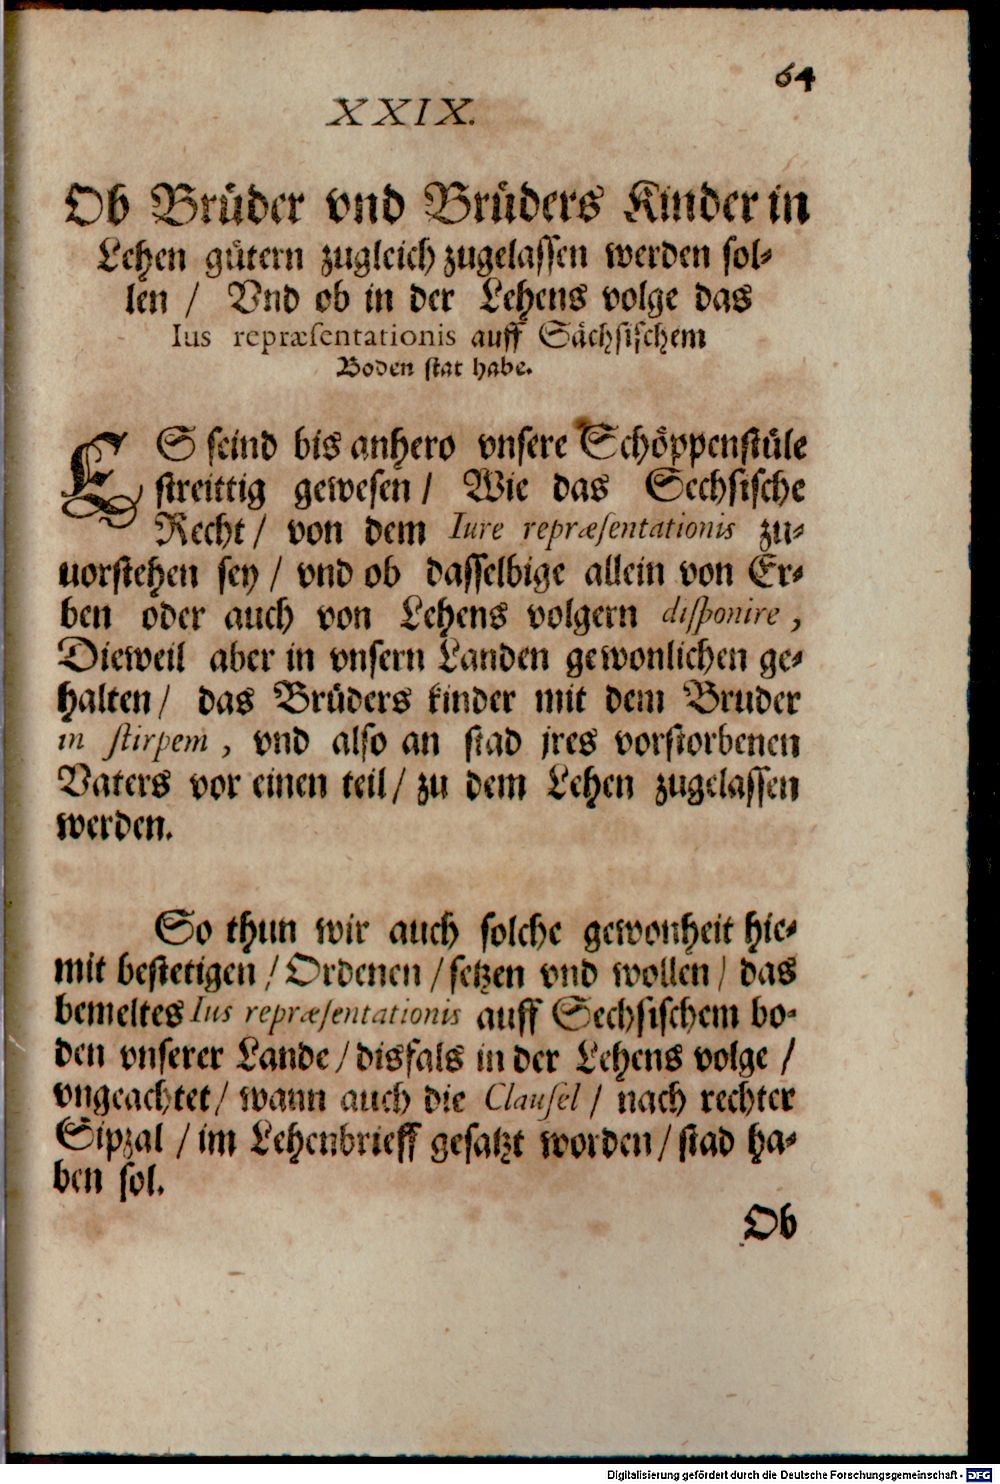 64
XXIX.
Ob Brüder vnd Brüders Kinder in
Lehen gütern zugleich zugelassen werden sol-
len / Vnd ob in der Lehens volge das
Ius repræsentationis auff Sächsischem
Boden stat habe.
ES seind bis anhero vnsere Schöppenstüle
streittig gewesen / Wie das Sechsische
Recht / von dem Iure repræsentationis zu-
uorstehen sey / vnd ob dasselbige allein von Er-
ben oder auch von Lehens volgern disponire ,
Dieweil aber in vnsern Landen gewonlichen ge-
halten / das Brüders kinder mit dem Bruder
in stirpem , vnd also an stad jres vorstorbenen
Vaters vor einen teil / zu dem Lehen zugelassen
werden.
So thun wir auch solche gewonheit hie-
mit bestetigen / Ordenen / setzen vnd wollen / das
bemeltes Ius repræsentationis auff Sechsischem bo-
den vnserer Lande / disfals in der Lehens volge /
vngeachtet / wann auch die Clausel / nach rechter
Sipzal / im Lehenbrieff gesatzt worden / stad ha-
ben sol.
Ob
Digitalisierung gefördert durch die Deutsche Forschungsgemeinschaft - DFG